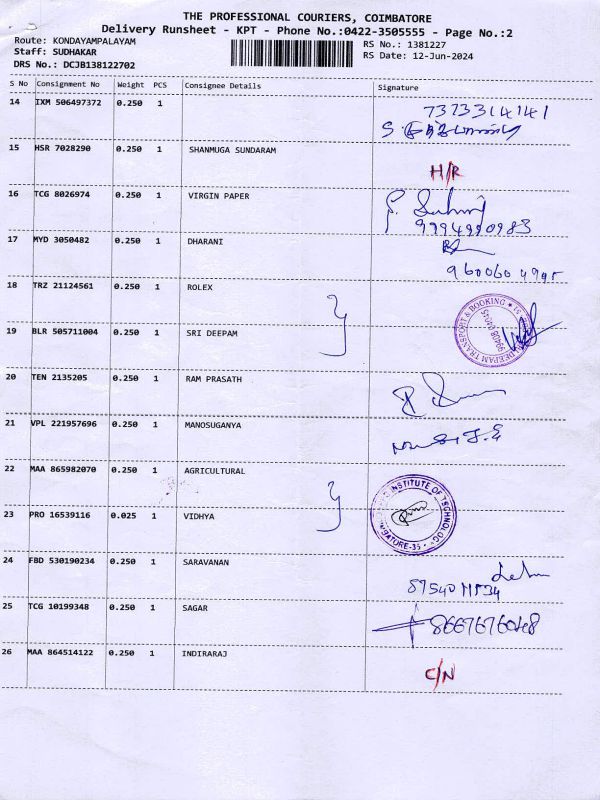 THE PROFESSIONAL COURIERS, COIMBATORE
Delivery Runsheet - KPT - Phone No.:0422-3505555 - Page No.:2
Route: KONDAYAMPALAYAM
RS No.: 1381227
Staff: SUDHAKAR
RS Date: 12-Jun-2024
DRS No.: DCJB138122702
S No Consignment No Weight PCS Consignee Details Signature
14 IXM 506497372 0.250 1 7373314141
15 HSR 7028290 0.250 1 SHANMUGA SUNDARAM H/R
16 TCG 8026974 0.250 1 VIRGIN PAPER
9994990983
17 MYD 3050482 0.250 1 DHARANI
960060 4995
18 TRZ 21124561 0.250 1 ROLEX
DEEPAM TRANSPORT & BOOKING
19 BLR 505711004 0.250 1 SRI DEEPAM
20 TEN 2135205 0.250 1 RAM PRASATH
21 VPL 221957696 0.250 1 MANOSUGANYA
22 MAA 865982070 0.250 1 AGRICULTURAL
INSTITUTE OF TECHNOLOG
BATORE-35
23 PRO 16539116 0.025 1 VIDHYA
24 FBD 530190234 0.250 1 SARAVANAN
25 TCG 10199348 0.250 1 SAGAR
26 MAA 864514122 0.250 1 INDIRARAJ C/N